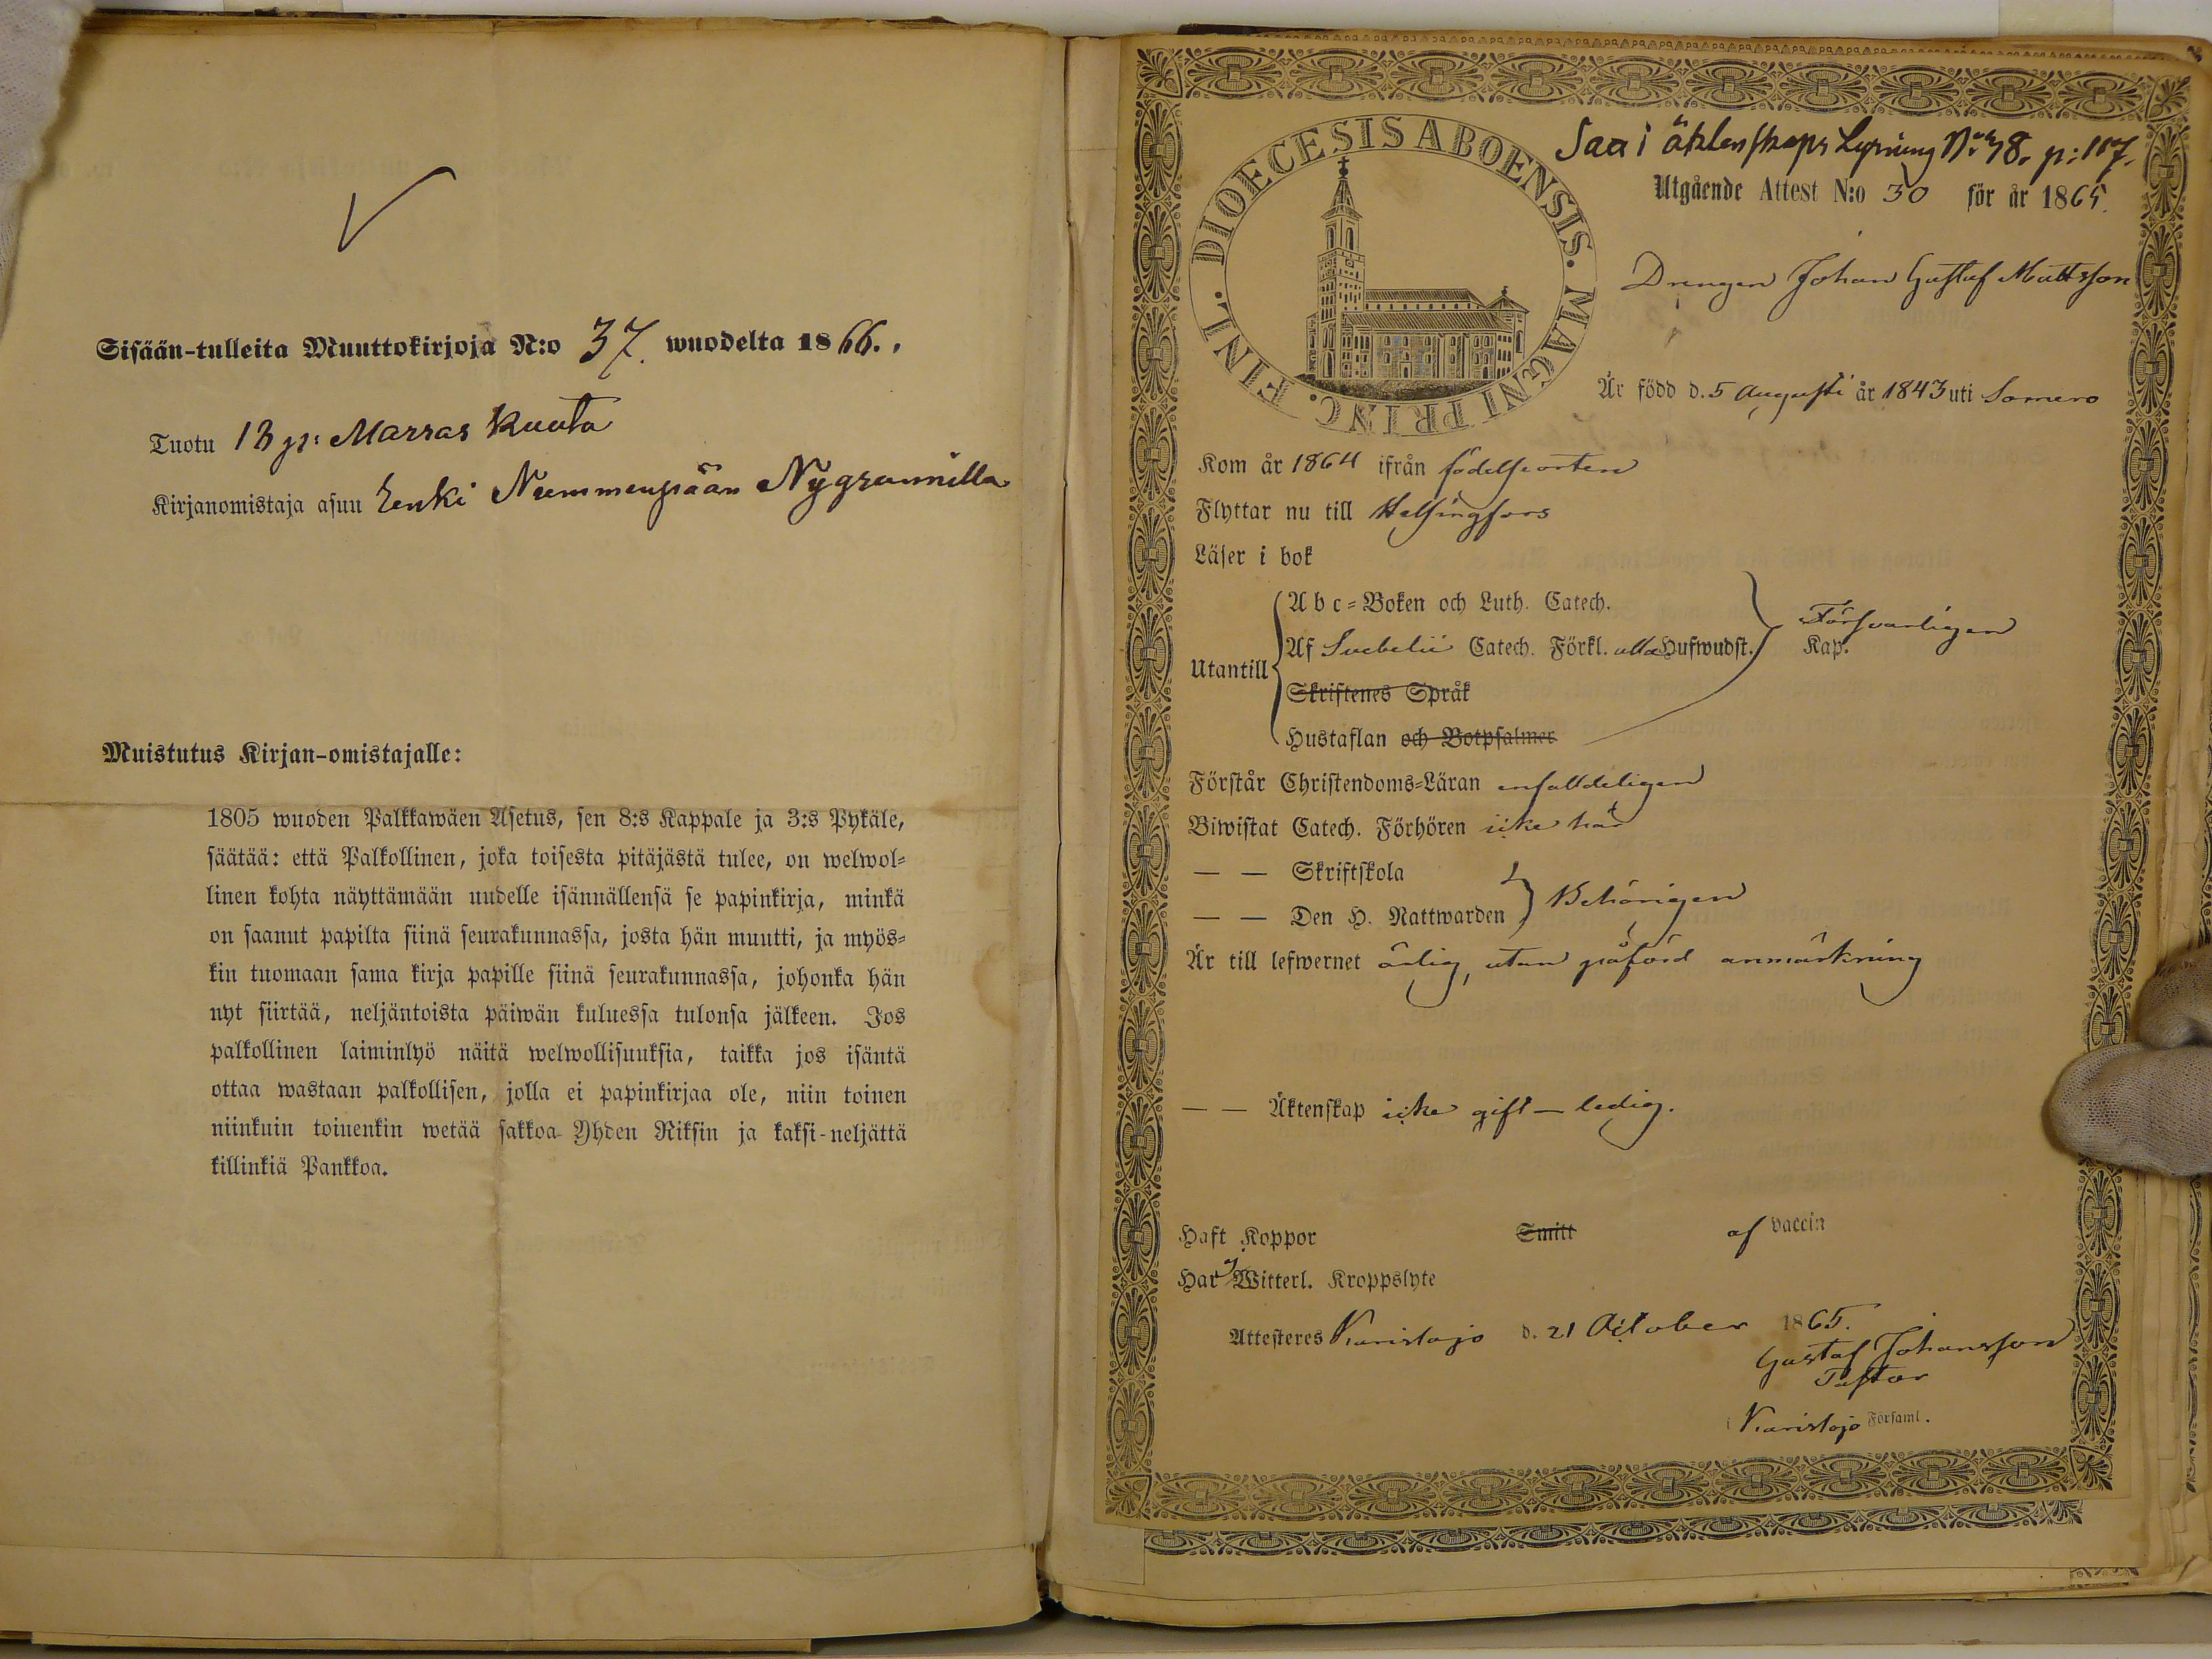 Sisään-tulleita Muuttokirjoja N:o 37. wuodelta 1866.,
Tuotu 13 p: Marras kuuta
Kirjanomistaja asuu Lenki Nummenpään Nygrannilla
Muistutus Kirjan-omistajalle:
1805 wuoden Palkkawäen Asetus, sen 8:s Kappale ja 3:s Pykäle,
säätää: että Palkollinen, joka toisesta pitäjästä tulee, on welwol-
linen kohta näyttämään uudelle isännällensä se papinkirja, minkä
on saanut papilta siinä seurakunnassa, josta hän muutti, ja myös-
kin tuomaan sama kirja papille siinä seurakunnassa, johonka hän
nyt siirtää, neljäntoista päiwän kuluessa tulonsa jälkeen. Jos
palkollinen laiminlyö näitä welwollisuuksia, taikka jos isäntä
ottaa wastaan palkollisen, jolla ei papinkirjaa ole, niin toinen
niinkuin toinenkin wetää sakkoa Yhden Riksin ja kaksi-neljättä
killinkiä Pankkoa.
DIOECESIS ABOENSIS. MAGNI PRINC. FINL.
Saa i äktenskaps Lysning N:o 48. p: 117.
Utgående Attest N:o 30 för år 1865.
Drengen Johan Gustaf Mattsson
Är född d. 5 Augusti år 1843 uti Somero
Kom år 1864 ifrån födelseorten
Flyttar nu till Helsingfors
Läser i bok
Utantill
A b c-Boken och Luth. Catech.
Af Svebelii Catech. Förkl. alla Hufwudst. Kap.
Försvarligen
Skriftenes Språk
Hustaflan och Botpsalmer
Förstår Christendoms-Läran enfalldeligen
Biwistat Catech. Förhören icke här
— — Skriftskola
— — Den H. Nattwarden Behörigen
Är till lefwernet ärlig, utan påförd anmärkning
— — Äktenskap icke gift – ledig.
Haft Koppor Smitt af vaccin
Har ej Witterl. Kroppslyte
Attesteres Karislojo d. 21 October 1865.
Gustaf Johansson
Pastor
i Karislojo Församl.